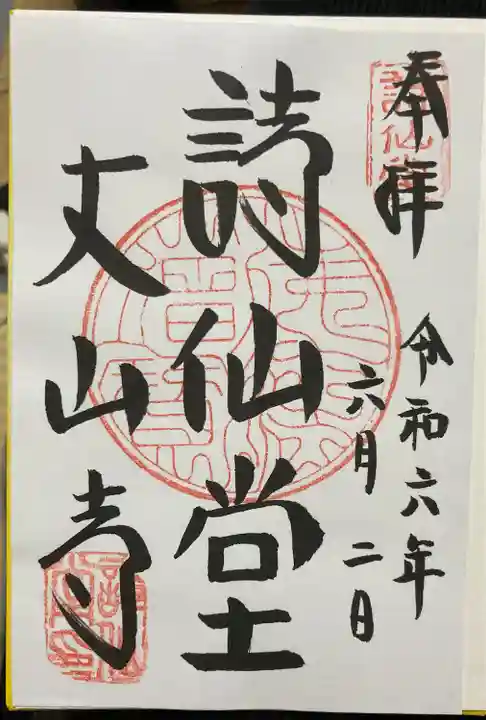 奉拝
令和六年
六月二日
詩仙堂
丈山寺